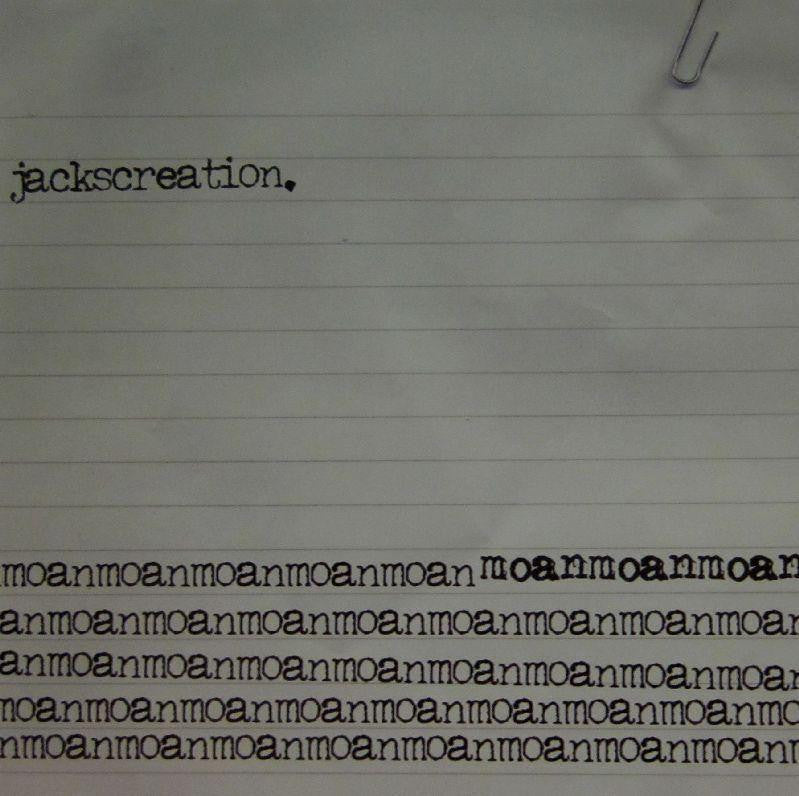 jackscreation.
moanmoanmoanmoanmoanmoanmoanmoan
anmoanmoanmoanmoanmoanmoanmoanmoan
anmoanmoanmoanmoanmoanmoanmoanmoan
moanmoanmoanmoanmoanmoanmoanmoanmo
nmoanmoanmoanmoanmoanmoanmoanmoanm